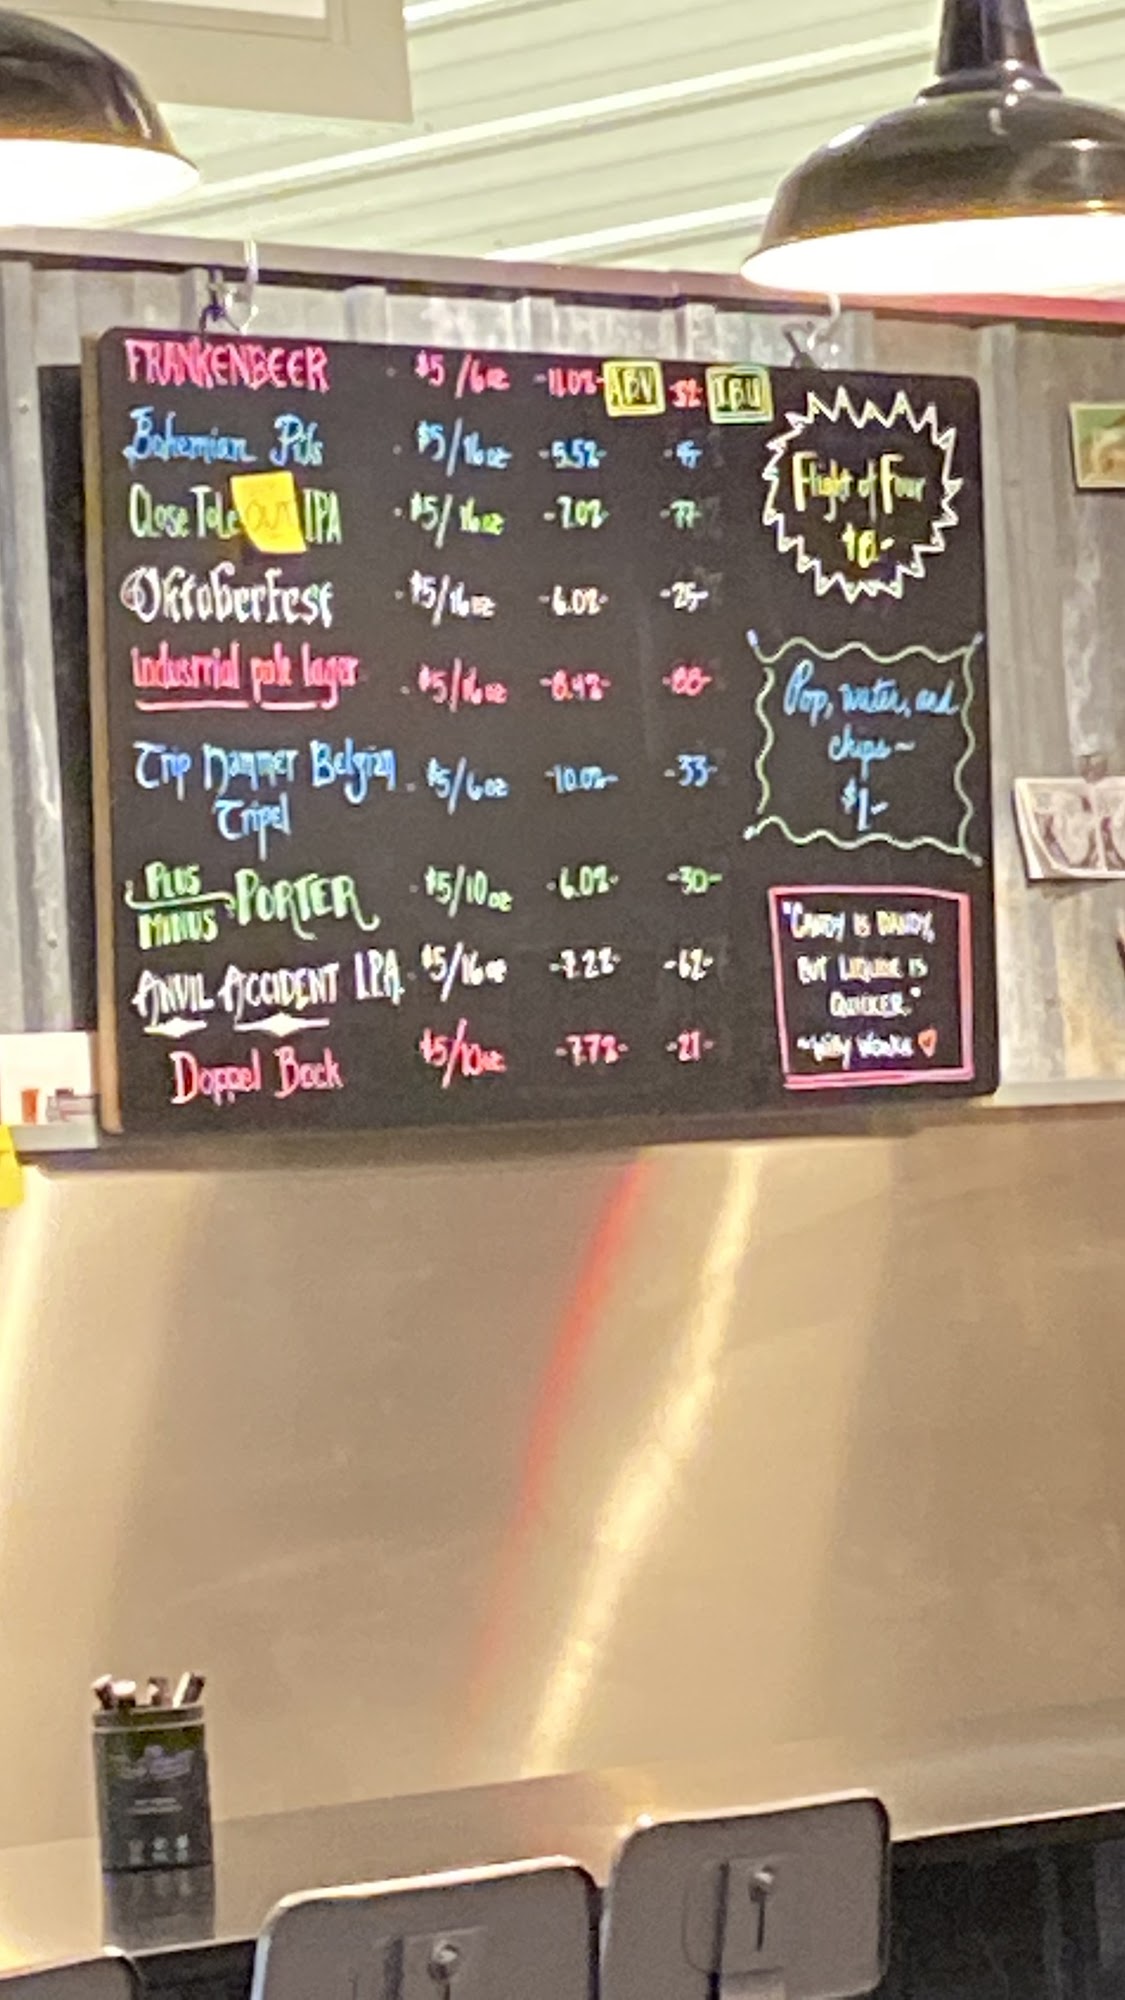 FRANKENBEER $5/6oz -11.0%- ABV 32 IBU
Bohemian Pils $5/16oz -5.5%-
Close Tole OUT IPA $5/16oz -7.0%- -77-
Oktoberfest $5/16oz -6.0%- -25-
industrial pale lager $5/16oz -8.4%- -88-
Trip Hammer Belgian $5/6oz -10.0%- -33-
Tripel
PLUS
MINUS PORTER $5/10oz -6.0%- -30-
ANVIL ACCIDENT I.P.A. $5/16oz -7.2%- -62-
Doppel Bock $5/10oz -7.7%- -21-
Flight of Four
Pop, water, and
chips~
$1-
"CANDY IS DANDY,
BUT LIQUOR IS
QUICKER."
~Willy Wonka